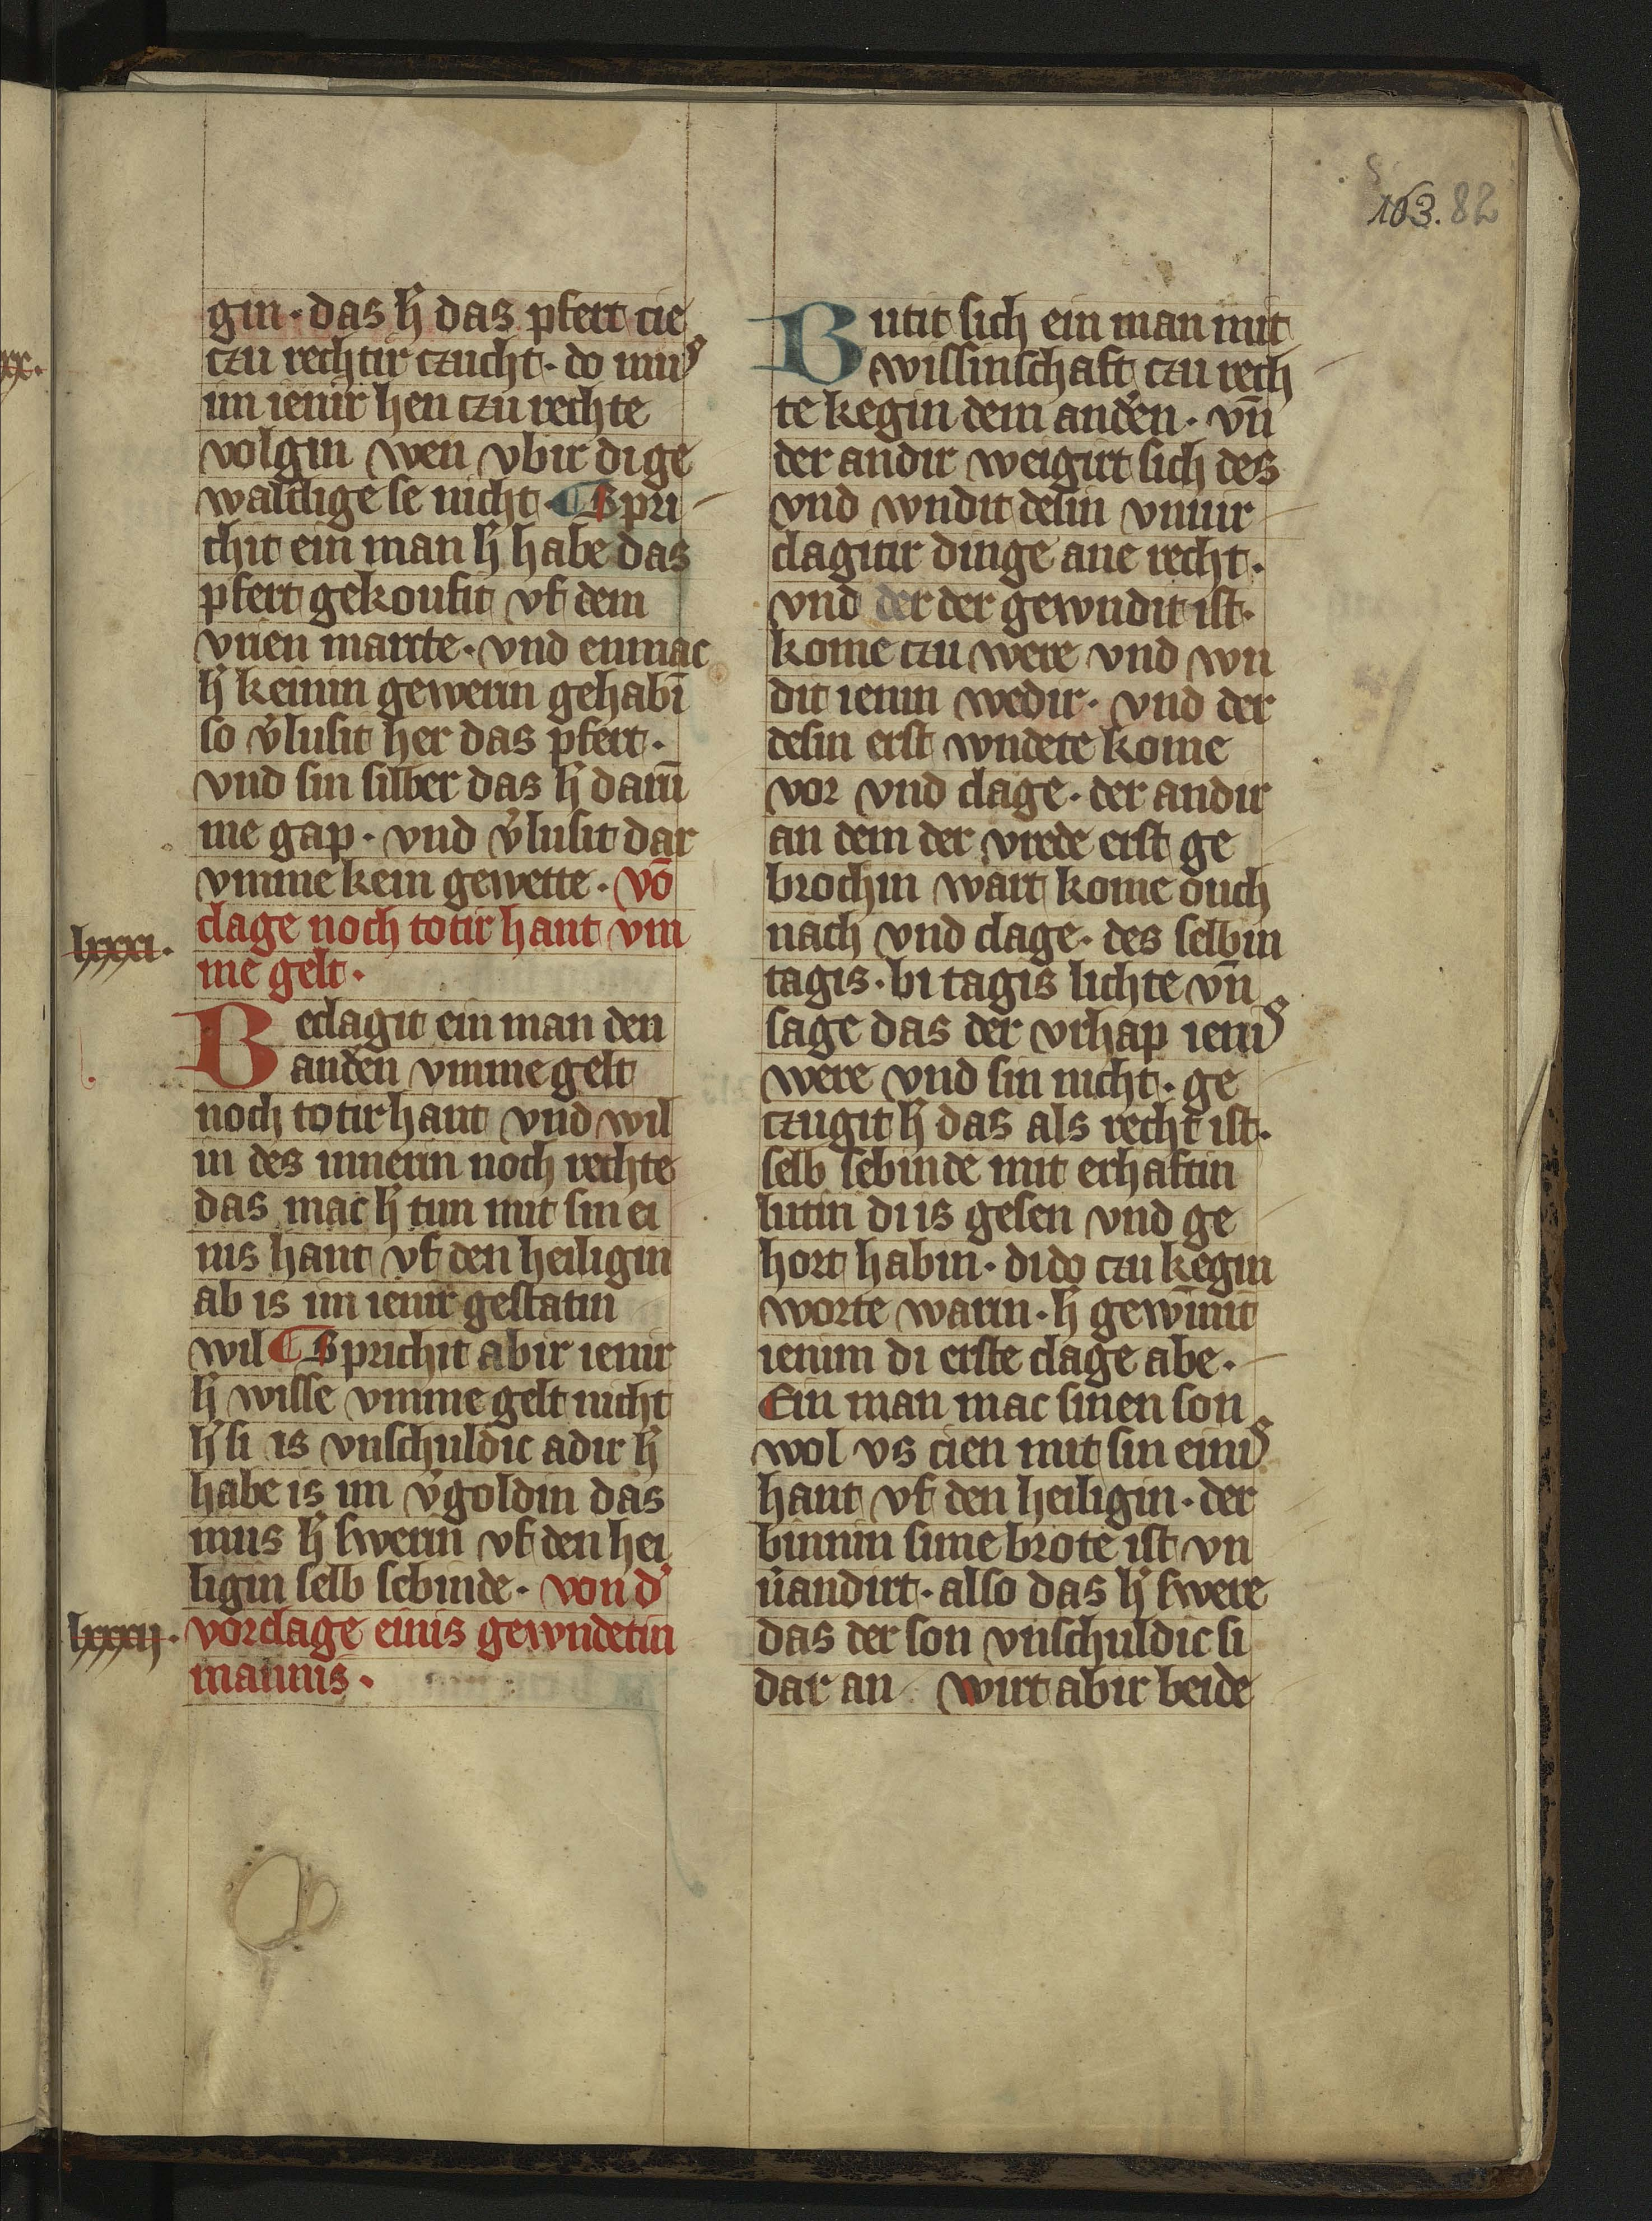 103. 82
gin · das h̄ das pfert cie
czu rechtir czucht · do mus
im ienir hen czu rechte
volgin wen vbir di ge
waldige se nicht · ¶ Spri
chit ein man h̄ habe das
pfert gekoufit vf dem
vrien marcte · vnd enmac
h̄ keinin gewerin gehabī
so v̉lusit her das pfert ·
vnd sin silber das h̄ darū
me gap · vnd v̉lusit dar
vmme kein gewette · Vō
clage noch totir hant vm
lxxxi ·
me gelt ·
Beclagit ein man den
andēn vmme gelt
noch totir hant vnd wil
in des innerin noch rechte
das mac h̄ tun mit sin ei
nis hant vf den heiligin
ab is im ienir gestatin
wil ¶ Sprichit abir ienir
h̄ wisse vmme gelt nicht
h̄ si is vnschuldic adir h̄
habe is im v̉goldin das
mus h̄ swerin vf den hei
ligin selb sebinde · von d̉
lxxxij ·
vorclage einis gewndetin
mannis ·
Butit sich ein man mit
wissinschaft czu rech
te kegin dem andēn · vn̄
der andir weigirt sich des
vnd wndit desin vnuir
clagitir dinge ane recht ·
vnd der der gewndit ist ·
kome czu were vnd wn
dit ienin wedir · vnd der
desin erst wndete kome
vor vnd clage · der andir
an dem der vrede erst ge
brochin wart kome ouch
nach vnd clage · des selbin
tagis · bi tagis lichte vn̄
sage das der vrhap ienis
were vnd sin nicht · ge
czugit h̄ das als recht ist ·
selb sebinde mit erhaftin
lutin di is gesen vnd ge
hort habin · di do czu kegin
worte warin · h̄ gewīnit
ienim di erste clage abe ·
Ein man mac sinen son
wol vs cien mit sin einis
hant vf den heiligin · der
binnin sime brote ist vn
v̉andirt · also das h̄ swere
das der son vnschuldic si
dar an · wirt abir beide